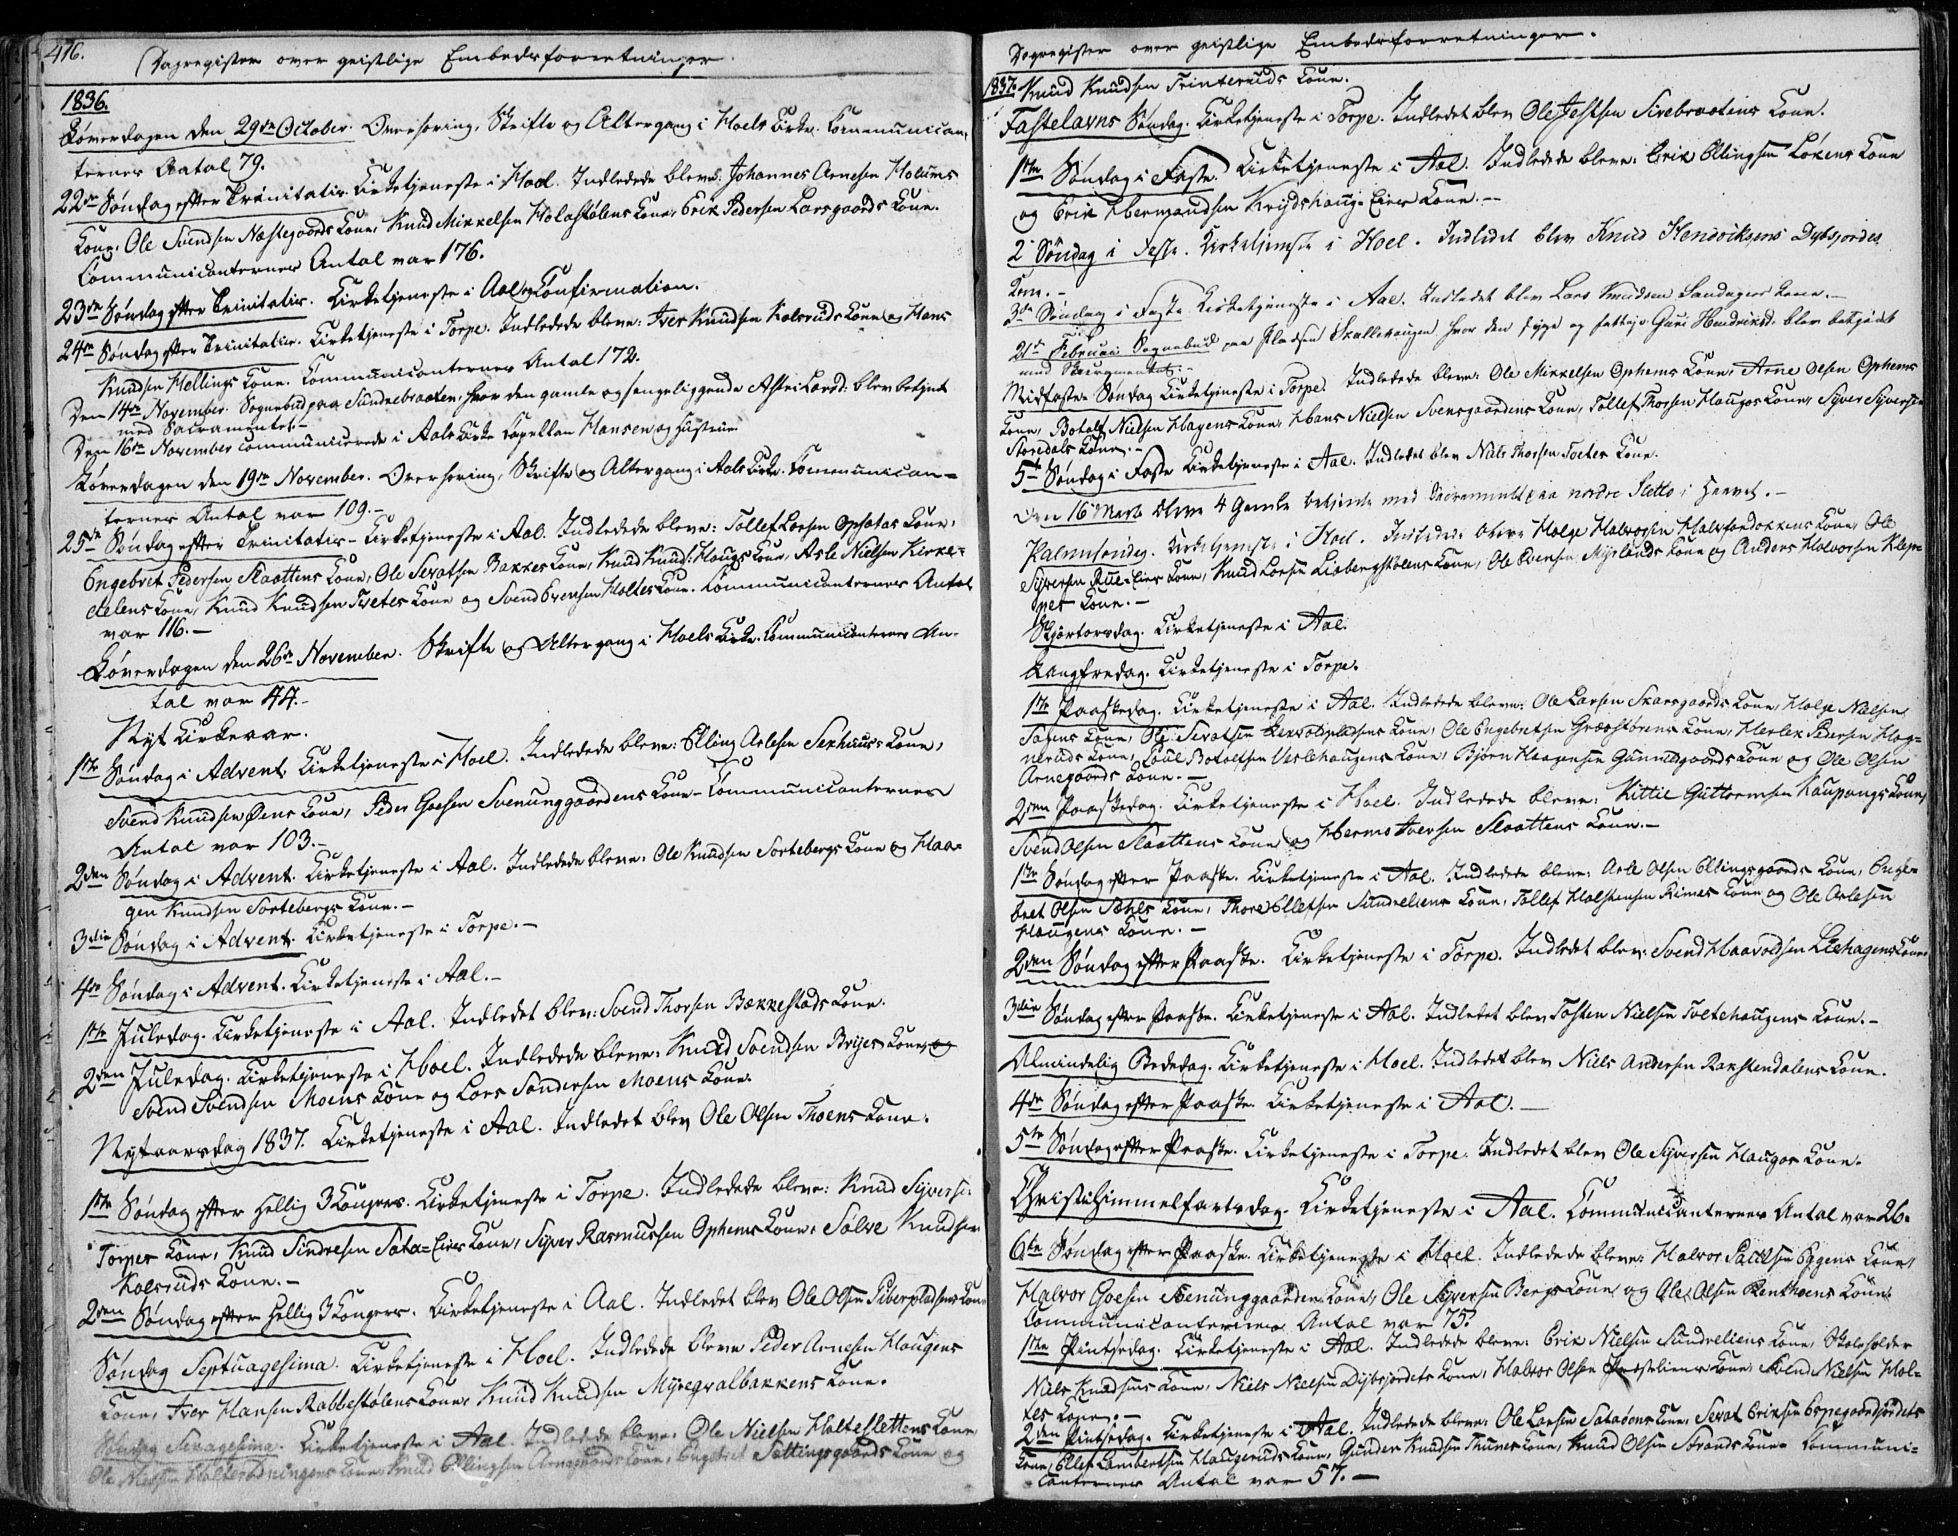 476.
Dagregister over geistlige Embedsforretninger.
1836.
Løverdagen den 29de October. Overhøring, Skrifte og Altergang i Hoels Kirke. Communican-
ternes Antal 79.
22de Søndag efter Trinitatis. Kirketjeneste i Hoel. Indledede bleve: Johannes Arnesen Holums
Kone, Ole Svendsen Næstegaards Kone, Knud Mikkelsen Holastølens Kone, Erik Pedersen Larsgaards Kone.
Communicanternes Antal var 176.
23de Søndag efter Trinitatis. Kirketjeneste i Aal og Confirmation.
24de Søndag efter Trinitatis. Kirketjeneste i Torpe. Indledede bleve: Iver Knudsen Kolsruds Kone og Hans
Knudsen Hellings Kone. Communicanternes Antal 172.
Den 14de November. Sognebud paa Sundrebraaten, hvor den gamle og sengeliggende Astri Larsd: blev betjent
med Sacramentet.-
Den 16de November communicerede i Aals Kirke Capellan Hansen og Hustrue.
Løverdagen den 19de November. Overhøring, Skrifte og Altergang i Aals Kirke. Communican-
ternes Antal var 109.-
25de Søndag efter Trinitatis - Kirketjeneste i Aal. Indledede bleve: Tollef Larsen Opsatas Kone,
Engebret Pedersen Slaattens Kone, Ole Sevatsen Bakkes Kone, Knud Knuds: Haugs Kone, Asle Nielsen Kirke-
delens Kone, Knud Knudsen Tvetes Kone og Svend Evensen Holtes Kone. Communicanternes Antal
var 116.-
Løverdagen den 26de November. Skrifte og Altergang i Hoels Kirke. Communicanternes An-
tal var 44.-
Nyt Kirkeaar.
1ste Søndag i Advent. Kirketjeneste i Hoel. Indledede bleve: Elling Arlesen Sexhuus Kone,
Svend Knudsen Øens Kone, Peder Goesen Svenunggaardens Kone - Communicanternes
Antal var 103.-
2den Søndag i Advent. Kirketjeneste i Aal. Indledede bleve: Ole Knudsen Sortebergs Kone og Haa-
gen Knudsen Sortebergs Kone.-
3die Søndag i Advent. Kirketjeneste i Torpe.-
4de Søndag i Advent. Kirketjeneste i Aal.-
1ste Juledag. Kirketjeneste i Aal. Indledet blev: Svend Thorsen Bækkestads Kone.
2den Juledag. Kirketjeneste i Hoel. Indledede bleve: Knud Svendsen Brijes Kone, og
Svend Svendsen Moens Kone og Lars Sandersen Moens Kone.
Nytaarsdag 1837. Kirketjeneste i Aal. Indledet blev Ole Olsen Thoens Kone.
1ste Søndag efter Hellig 3 Konger. Kirketjeneste i Torpe. Indledede bleve: Knud Syverse:
Torpes Kone, Knud Sindresen Sata-Eies Kone, Syver Rasmussen Ophems Kone, Salve Knudsen
Kolsruds Kone.-
2den Søndag efter Hellig 3 Konger. Kirketjeneste i Aal. Indledet blev Ole Olsen Piverpladsens Kone
Søndag Septuagesima. Kirketjeneste i Hoel. Indledede bleve Peder Arnesen Haugens
Kone, Iver Hansen Rabbestølens Kone, Knud Knudsen Myregvalbakkens Kone.
Søndag Sexagesima. Kirketjeneste i Aal. Indledede bleve: Ole Nielsen Holteslettens Kone,
Ole Nielsen Kone, Knud Ellingsen Arnegaards Kone, Engebret Settingsgaards Kone og
Dagregister over geistlige Embedsforretninger.
1837. Knud Knudsen Trinteruds Kone.
Fastelavns Søndag. Kirketjeneste i Torpe. Indledet blev Ole Jestsen Sirebraatens Kone.
1ste Søndag i Faste. Kirketjeneste i Aal. Indledede bleve: Erik Ellingsen Løkens Kone
og Erik Hermandsen Krydshaug-Eies Kone.-
2 Søndag i Faste. Kirketjeneste i Hoel. Indledet blev Knud Hendriksens Dybsjordes
Kone.-
3de Søndag i Faste Kirketjeneste i Aal. Indledet blev Lars Knudsen Sandagers Kone.-
21de Februar Sognebud paa Pladsen Skallehaugen hvor den syge og fattige Guri Hendriksd. blev betjent
med Sacramentet.-
Midfaste Søndag Kirketjeneste i Torpe. Indledede bleve: Ole Mikkelsen Ophems Kone, Arne Olsen Ophems
Kone, Botolf Nielsen Hagens Kone, Hans Nielsen Svensgaardens Kone, Tollef Thorsen Haugos Kone, Syver Syversen
Noredals Kone.-
5te Søndag i Faste Kirketjeneste i Aal. Indledet blev Niels Thorsen Toetes Kone.
Den 16 Marts bleve 4 Gamle betjente med Sacramentet paa nordre Sletto i Herred.-
Palmesøndag. Kirketjeneste i Hoel. Indledede bleve Holge Halvorsen Halvfordokkens Kone, Ole
Syversen Rue-Eies Kone, Knud Larsen Liabergstølens Kone, Ole Edensen Myrlands Kone og Anders Halvorsen Klep-
pes Kone.-
Skjærtorsdag. Kirketjeneste i Aal.
Langfredag. Kirketjeneste i Torpe.
1ste Paaskedag. Kirketjeneste i Aal. Indledede bleve: Ole Larsen Skarsgaards Kone, Holge Nielsen
Tofens Kone, Ole Sevatsen Lexvoldpladsens Kone, Ole Engebretsen Græsstørens Kone, Herlek Pedersen Hog-
neruds Kone, Poul Botolfsen Veslehaugens Kone, Bjørn Haagensen Gunnildgaards Kone og Ole Olsen
Arnegaards Kone.-
2den Paaskedag. Kirketjeneste i Hoel. Indledede bleve: Kittil Guttormsen Kaupangs Kone,
Svend Olsen Slaattens Kone og Herms Iversen Slaattens Kone.-
1ste Søndag efter Paaske. Kirketjeneste i Aal. Indledede bleve: Asle Olsen Ellingsgaards Kone, Enge-
bret Olsen Sæhls Kone, Thore Ellefsen Sundreliens Kone, Tollef Holstensen Rimes Kone og Ole Arlesen
Haugens Kone.-
2den Søndag efter Paaske. Kirketjeneste i Torpe. Indledet blev: Svend Haavoldsen Liehagens Kone
3die Søndag efter Paaske. Kirketjeneste i Aal. Indledet blev Tosten Nielsen Tveitehaugens Kone.-
Almindelig Bededag. Kirketjeneste i Hoel. Indledet blev Niels Andersen Raustendalens Kone.
4de Søndag efter Paaske. Kirketjeneste i Aal.-
5te Søndag efter Paaske. Kirketjeneste i Torpe. Indledet blev Ole Syversen Haugos Kone.
Christi Himmelfartsdag. Kirketjeneste i Aal. Communicanternes Antal var 26.
6te Søndag efter Paaske. Kirketjeneste i Hoel. Indledede bleve: Halvor Paulsen Eggens Kone,
Halvor Goesen Svenunggaardens Kone, Ole Syversen Bergs Kone og Ole Olsen Renthoens Kone.
Communicanternes Antal var 75.
1ste Pintsedag. Kirketjeneste i Aal. Indledede bleve: Erik Nielsen Sundreliens Kone, Skoleholder
Niels Knudsens Kone, Niels Nielsen Dybsjordets Kone, Halvor Olsen Præsteliens Kone, Svend Nielsen Hol-
tes Kone.-
2den Pintsedag. Kirketjeneste i Aal. Indledede bleve: Ole Larsen Sataøens Kone, Sevat Eriksen Espegaardjordets
Kone, Ellef Lambertsen Haugeruds Kone, Gunder Knudsen Thunes Kone, Knud Olsen Strands Kone. Communi-
canternes Antal var 57.-